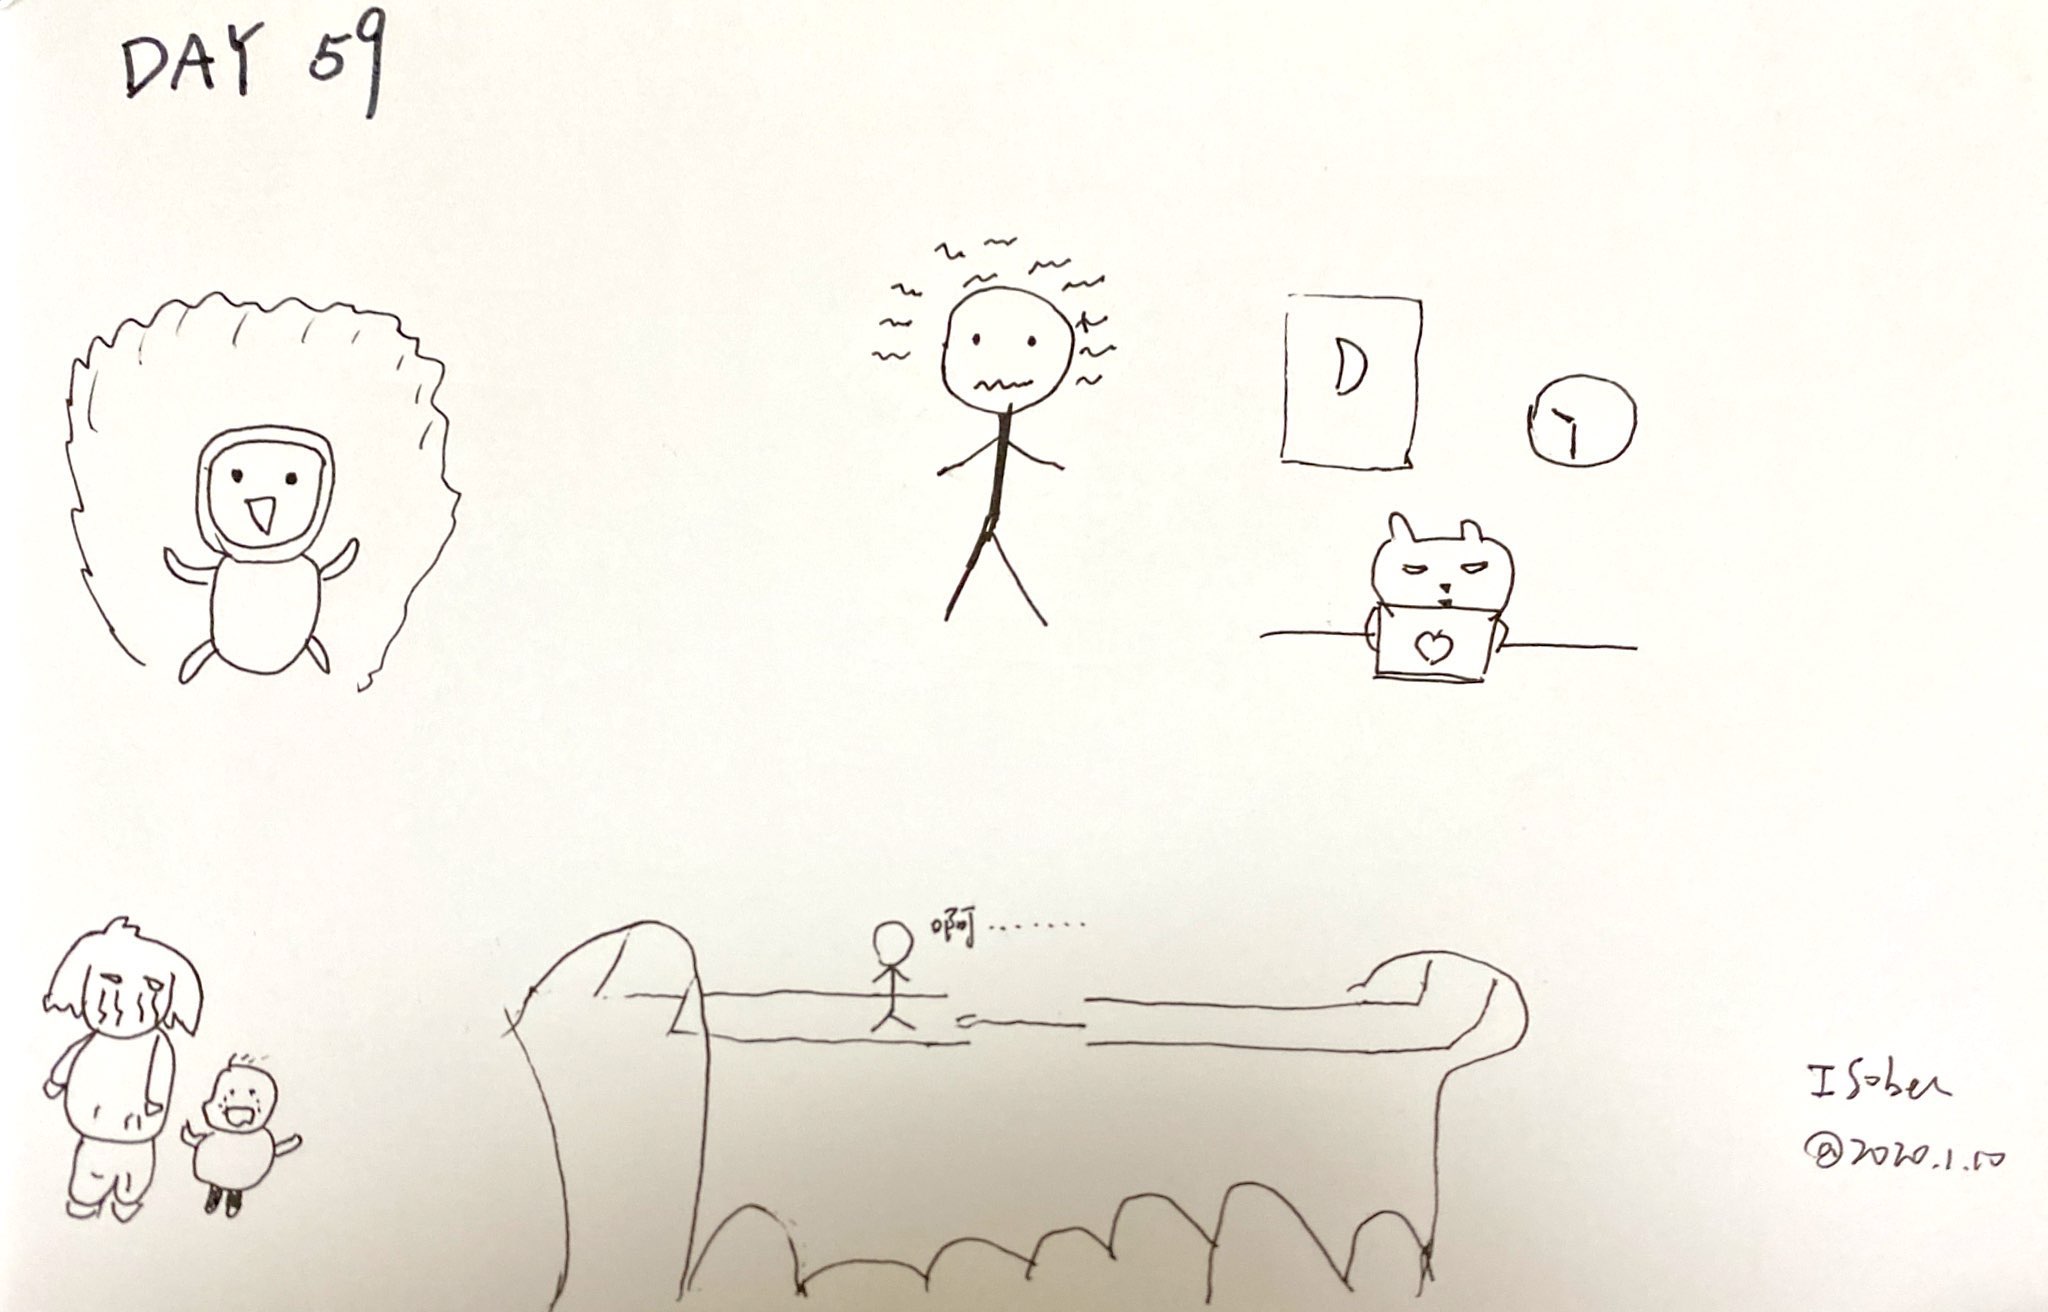 DAY 59
D
啊.......
I Sober
@2020.1.10